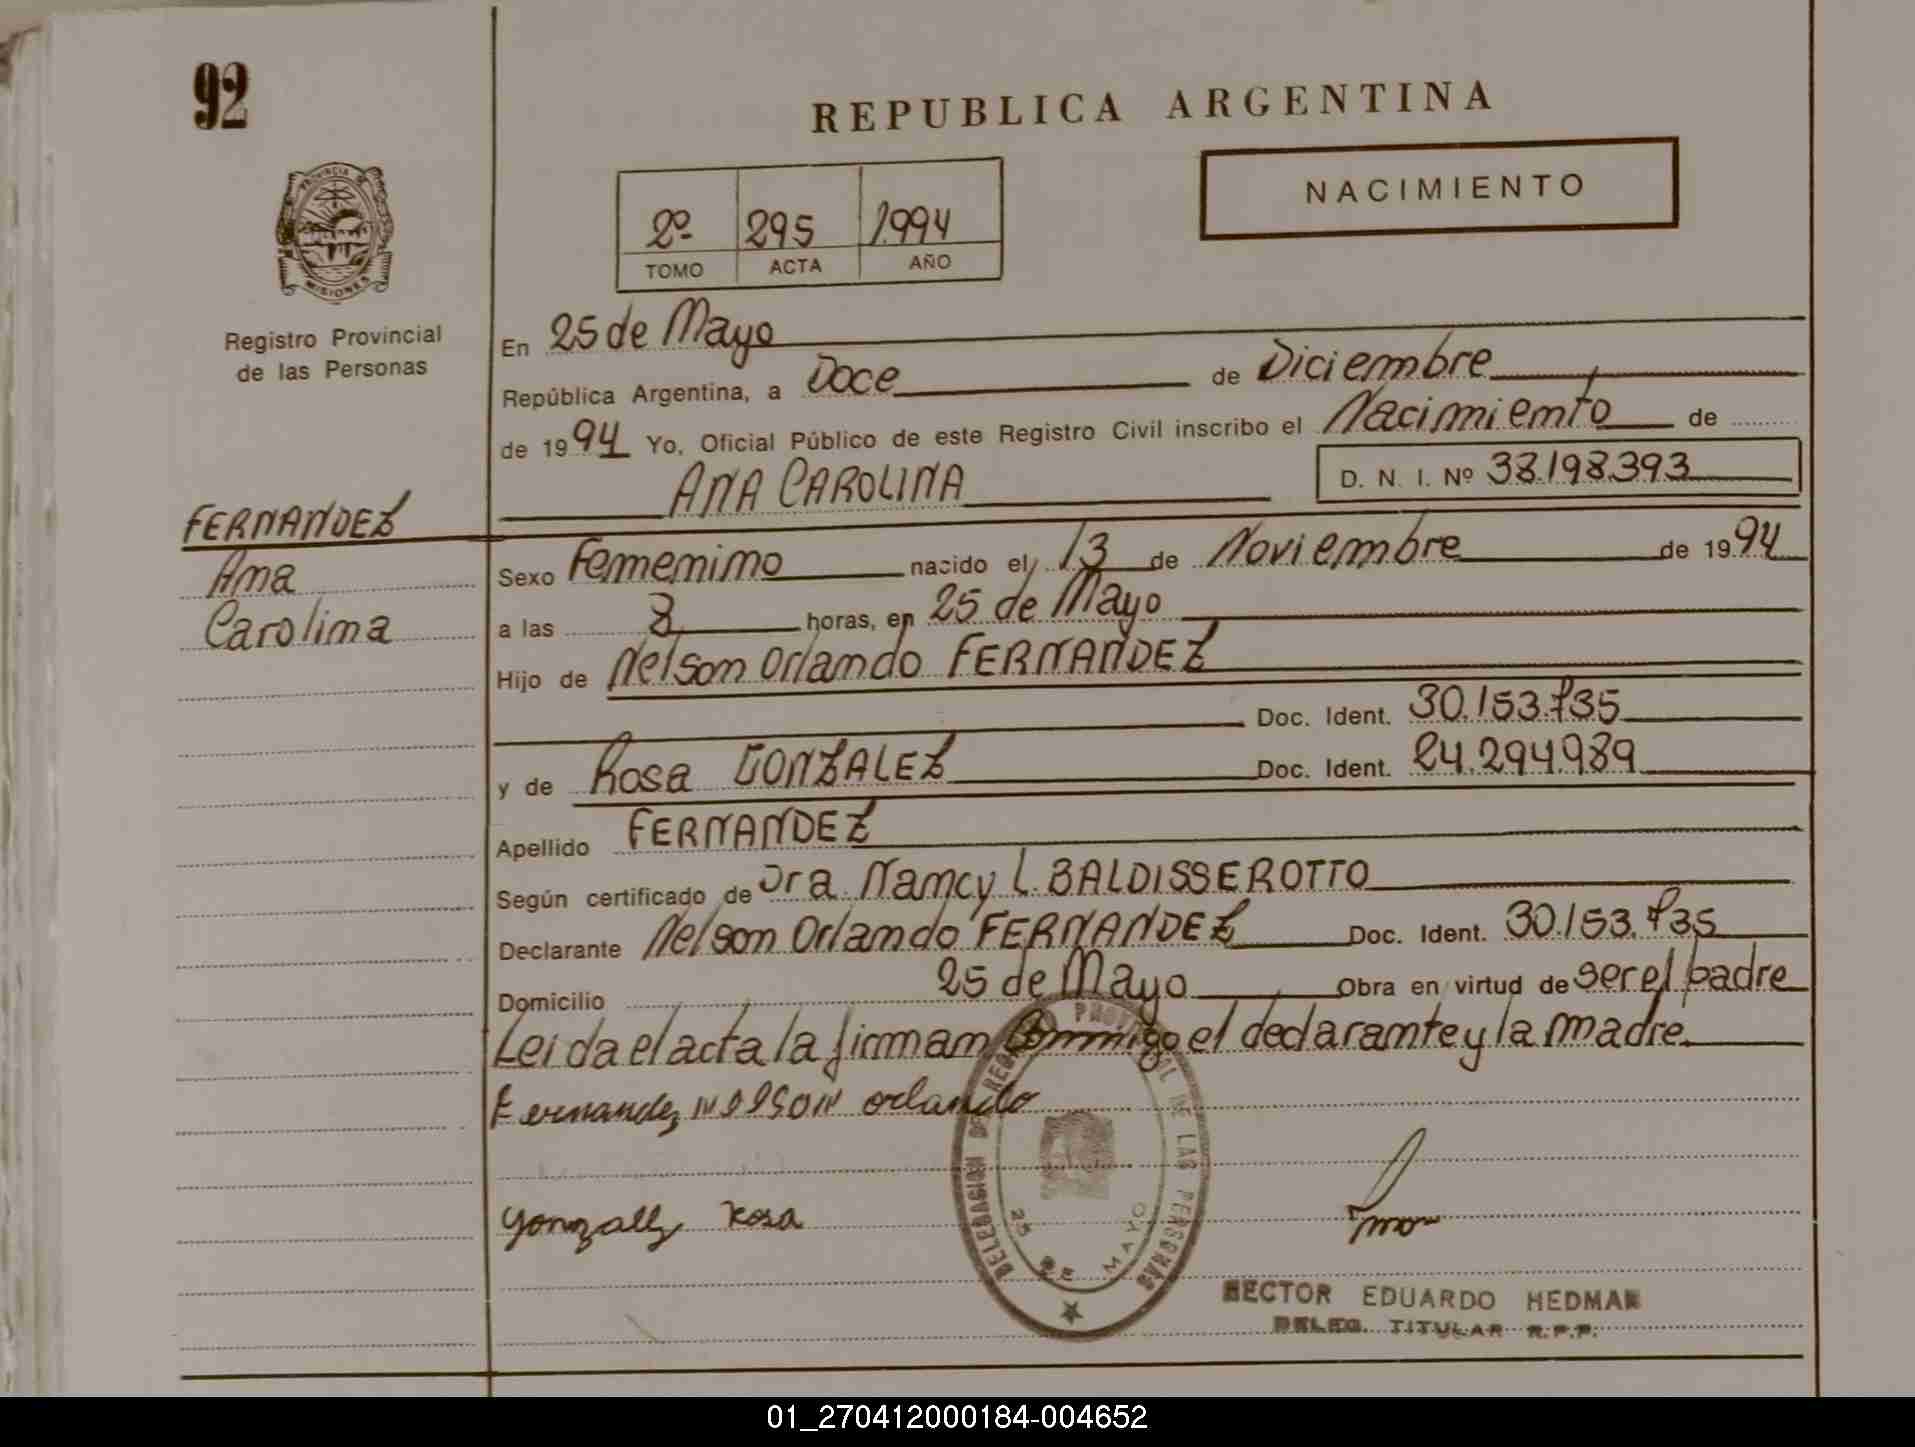 92
REPUBLICA ARGENTINA
NACIMIENTO
2º 295 1994
TOMO ACTA AÑO
PROVINCIA DE
MISIONES
Registro Provincial
de las Personas
En 25 de Mayo
República Argentina, a Doce de Diciembre
de 1994 Yo, Oficial Público de este Registro Civil inscribo el Nacimiento de
ANA CAROLINA D. N. I. Nº 38.198.393
FERNANDEZ
Ana
Carolina
Sexo Femenino nacido el 13 de Noviembre de 1994
a las 8 horas, en 25 de Mayo
Hijo de Nelson Orlando FERNANDEZ
Doc. Ident. 30.153.735
y de Rosa GONZALEZ Doc. Ident. 24.294.989
Apellido FERNANDEZ
Según certificado de Dra. Nancy L. BALDISSEROTTO
Declarante Nelson Orlando FERNANDEZ Doc. Ident. 30.153.735
Domicilio 25 de Mayo Obra en virtud de ser el padre
Leida el acta la firman conmigo el declarante y la madre.
Fernandez Nelson orlando
DELEGACION DEL REGISTRO PROVINCIAL DE LAS PERSONAS
25 DE MAYO
Gonzalez Rosa
HECTOR EDUARDO HEDMAN
DELEG. TITULAR R.P.P.
01_270412000184-004652